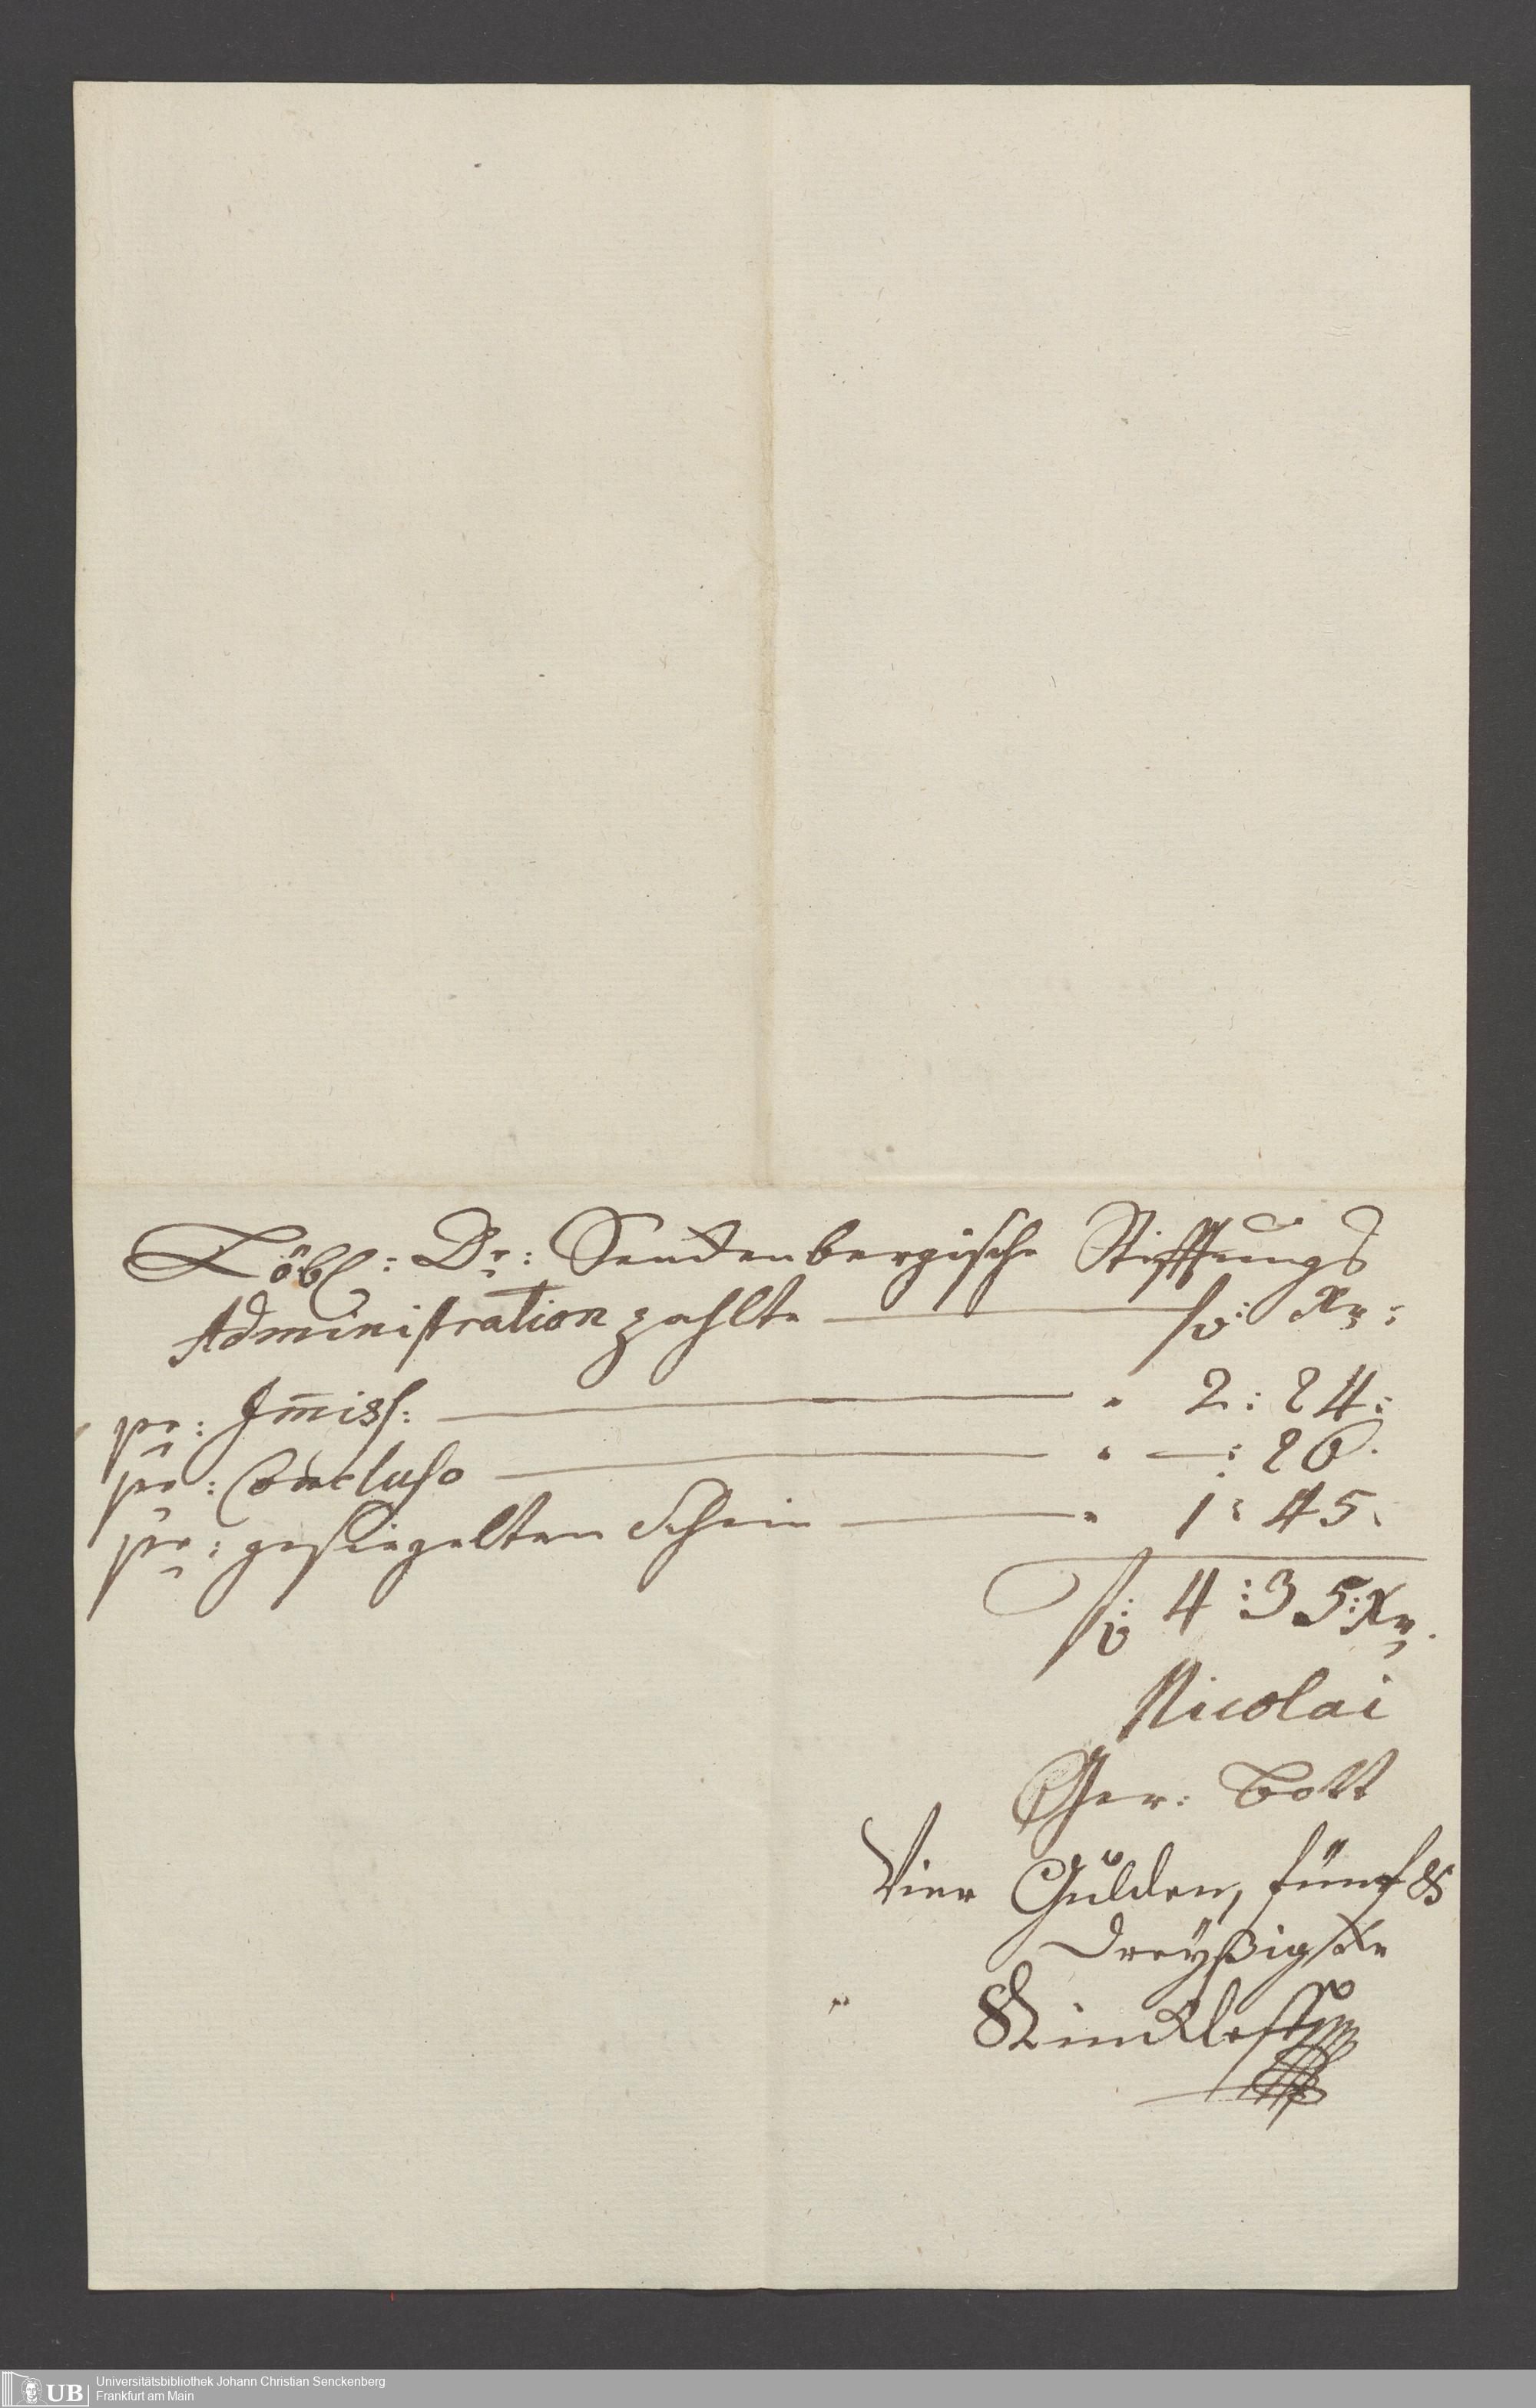 Löbl: Dr: Senckenbergische Stifftungs
Administration zahlte — fl: Xr:
pr: Im̅iss: — " 2: 24:
pr: Concluso — " —: 26.
pr: gesiegelten Schein — " 1: 45.
fl: 4: 35: Xr.
Nicolai
Ger: Bott
Vier Gulden, fünf &
dreyßig Xr
UB Universitätsbibliothek Johann Christian Senckenberg
Frankfurt am Main